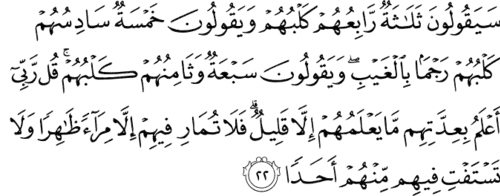 سَيَقُولُونَ ثَلَٰثَةٌ رَّابِعُهُمْ كَلْبُهُمْ وَيَقُولُونَ خَمْسَةٌ سَادِسُهُمْ
كَلْبُهُمْ رَجْمًۢا بِٱلْغَيْبِ ۖ وَيَقُولُونَ سَبْعَةٌ وَثَامِنُهُمْ كَلْبُهُمْ ۚ قُل رَّبِّىٓ
أَعْلَمُ بِعِدَّتِهِم مَّا يَعْلَمُهُمْ إِلَّا قَلِيلٌ ۗ فَلَا تُمَارِ فِيهِمْ إِلَّا مِرَآءً ظَٰهِرًا وَلَا
تَسْتَفْتِ فِيهِم مِّنْهُمْ أَحَدًا ٢٢